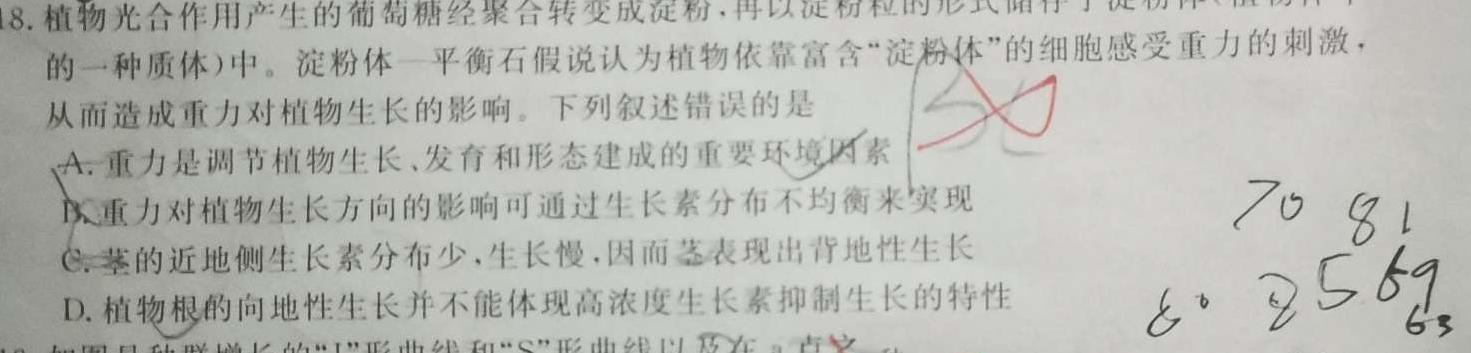 18.植物光合作用产生的葡萄糖经聚合转变成淀粉,再以淀粉粒的形式储存于淀粉体(植物
的一种质体)中。淀粉体—平衡石假说认为植物依靠富含“淀粉体”的细胞感受重力的刺激,
从而造成重力对植物生长的影响。下列叙述错误的是
A.重力是调节植物生长、发育和形态建成的重要环境因素
B.重力对植物生长方向的影响可通过生长素分布不均衡来实现
C.茎的近地侧生长素分布少,生长慢,因而茎表现出背地性生长
D.植物根的向地性生长并不能体现高浓度生长素抑制生长的特性
70 81
69
63
种群增长的“J”形曲线和“S”形曲线以及在a点之